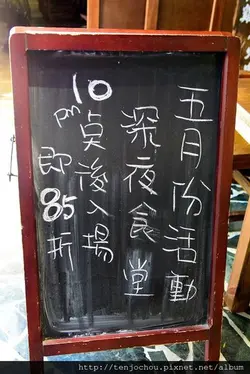 五月份活動
深夜食堂
10點後入場
即85折
http://tenjochou.pixnet.net/album